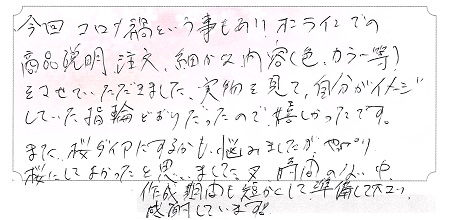 今回 コロナ禍という事もあり オンラインでの
商品説明、注文、細かな内容(色、カラー等)
をさせていただきました、実物を見て、自分がイメージ
していた指輪どおりだったので嬉しかったです。
また、桜ダイヤにするかも、悩みましたが、やっぱり
桜にしてよかったと思いました 又 時間のない中
作成期間も短かくして、準備して
感謝しています。